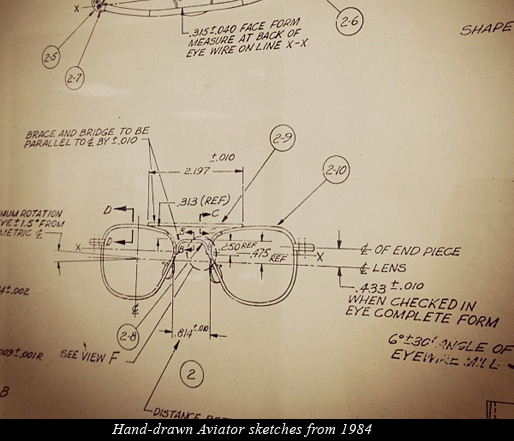 X
2-6
2-5
2-7
.315±.040 FACE FORM
MEASURE AT BACK OF
EYE WIRE ON LINE X-X
SHAPE
BRACE AND BRIDGE TO BE
PARALLEL TO ℄ BY ±.010
2-9
±.010
2.197
2-10
.313 (REF)
C
D
ROTATION
±1.5° FROM
METRIC ℄
D
B
.250 REF
.475
REF
X
X
℄ OF END PIECE
℄ LENS
.433 ±.010
WHEN CHECKED IN
EYE COMPLETE FORM
±.002
2-8
.814 ±.010
6°±30' ANGLE OF
EYEWIRE
SEE VIEW F
2
B
DISTANCE
Hand-drawn Aviator sketches from 1984